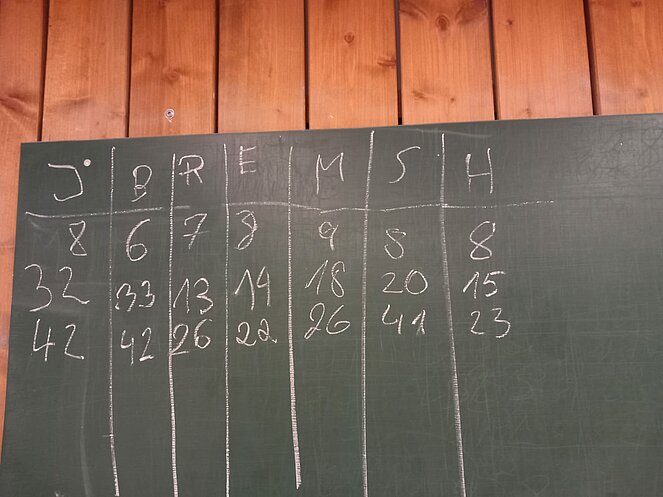 J B R E M S H
8 6 7 8 9 5 8
32 33 13 14 18 20 15
42 42 26 22 26 41 23